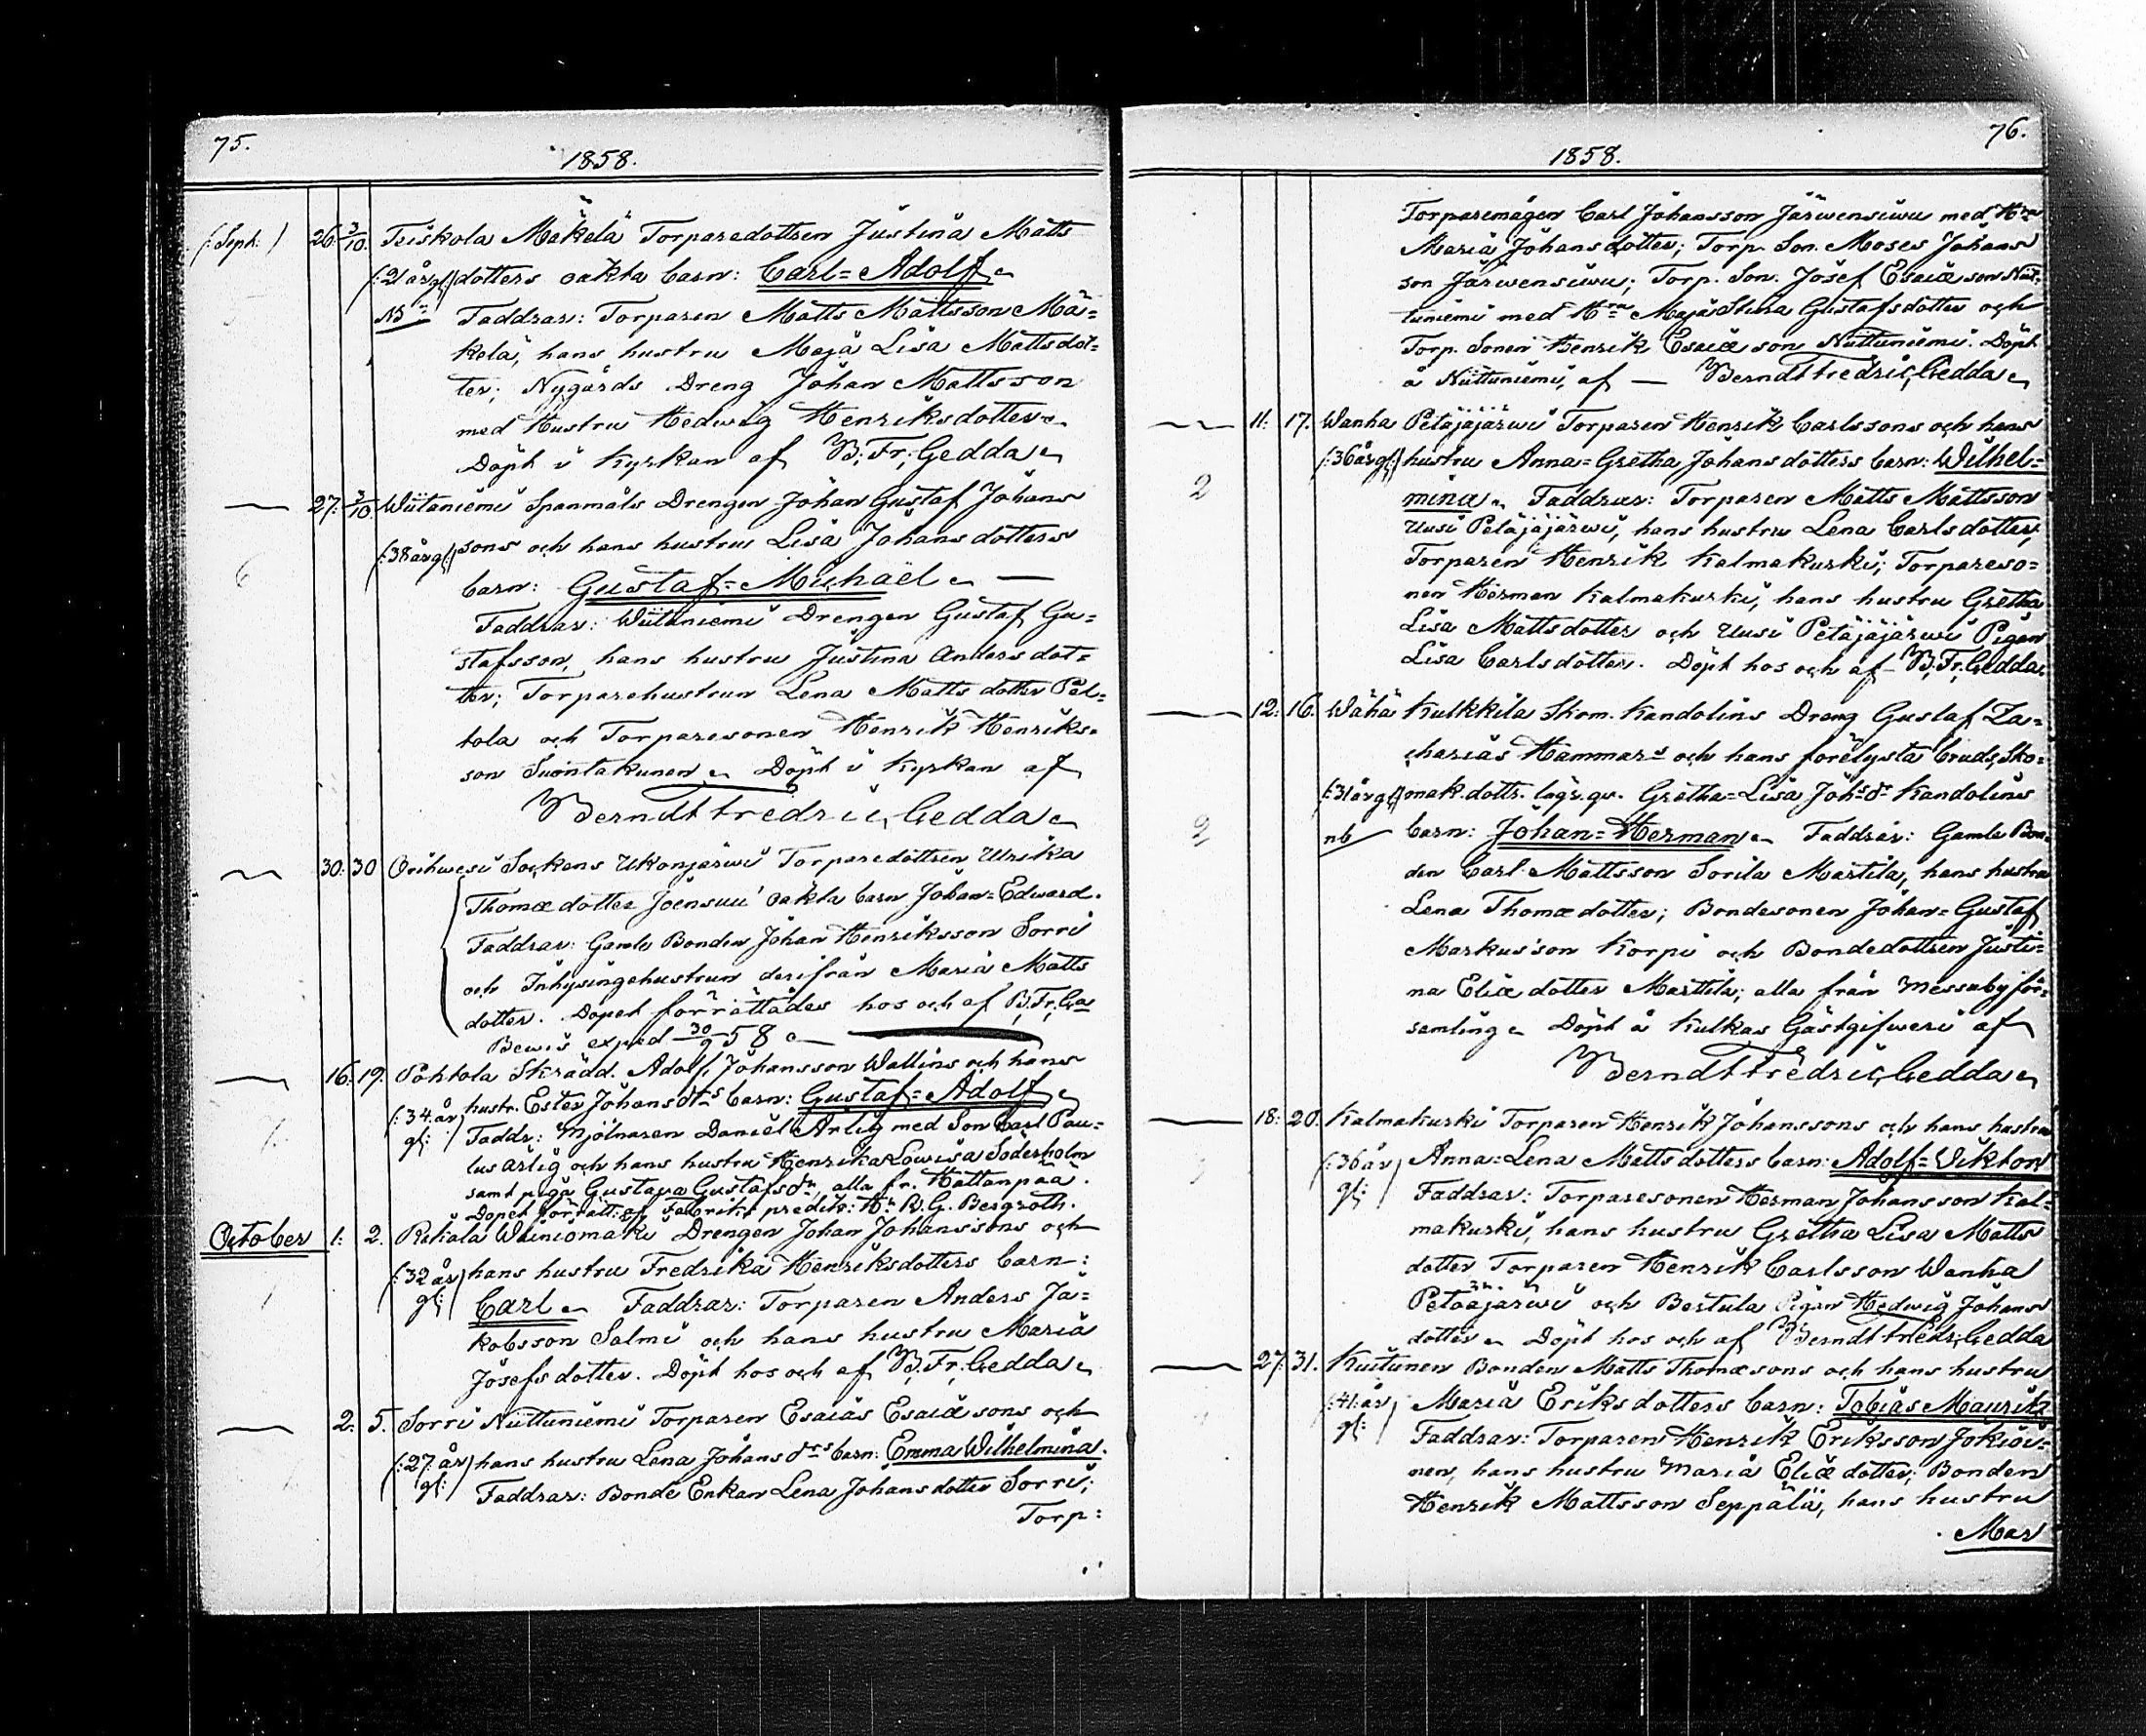 75.
1858.
(: Sept: ) 26. 3/10. Teiskola Mäkelä Torparedottren Justina Matts
(: 21 år gl :) dotters oäkta barn: Carl=Adolf
NB Faddrar: Torparen Matts Mattsson Mä=
kelä, hans hustru Maja Lisa Mattsdot=
ter; Nygårds Dreng Johan Mattsson
med Hustru Hedwig Henriksdotter
Döpt i Kyrkan af B; Fr; Gedda
27. 3/10. Wiitaniemi Spanmåls Drengen Johan Gustaf Johans
6 (: 38 år gl :) sons och hans hustru Lisa Johansdotters
barn: Gustaf=Michaël
Faddrar: Wiitaniemi Drengen Gustaf Gu=
stafsson, hans hustru Justina Andersdot=
ter; Torparehustrun Lena Mattsdotter Pät=
tola och Torparesonen Henrik Henriks=
son Suontakunen Döpt i Kyrkan af
Berndt Fredric Gedda
30. 30 Orihwesi Sockens Ukonjärwi Torparedottren Ulrika
Thomædotter Joensuu oäkta barn Johan=Edward.
Faddrar: Gamle Bonden Johan Henriksson Sorri
och Inhysingehustrun derifrån Maria Matts
dotter. Döpet förrättades hos och af B; Fr; Ga
Bewis exped 30/9 58
16. 19. Pohtola Skrädd. Adolf Johansson Wallins och hans
(: 34 år gl: ) hustr. Ester Johansdts barn: Gustaf=Adolf
Faddr: Mjölnaren Daniel Ärlig med Son Carl Pau=
lus Ärlig och hans hustru Henrika Lowisa Söderholm
samt pigan Gustava Gustafsdr, alla fr. Hattanpää.
Dopet förrätt: af Fabriks predik: Hr B. G. Bergroth.
October 1: 2. Rukala Wainiomäki Drengen Johan Johanssons och
(: 32 år gl: ) hans hustru Fredrika Henriksdotters barn:
Carl Faddrar: Torparen Anders Ja=
kobsson Salmi och hans hustru Maria
Josefsdotter. Döpt hos och af B; Fr; Gedda
2. 5. Sorri Niittuniemi Torparen Esaias Esaiæsons och
(: 27 år gl: ) hans hustru Lena Johansdrs barn: Emma Wilhelmina.
Faddrar: Bonde Enkan Lena Johansdotter Sorri;
Torp:
76.
1858.
Torparemågen Carl Johansson Järwensiwu med Hru
Maria Johansdotter; Torp. Son. Moses Johans
son Järwensiwu; Torp. Son. Josef Esaiæson Niit=
tuniemi med Hru Maja Stina Gustafsdotter och
Torp. Sonen Henrik Esaiæson Niittuniemi. Döpt
å Niittuniemi, af — Berndt Fredric Gedda
11: 17. Wanha Petäjäjärwi Torparen Henrik Carlssons och hans
(: 36 år gl :) hustru Anna=Gretha Johansdotters barn: Wilhel=
2 mina Faddrar: Torparen Matts Mattsson
Uusi Petäjäjärwi, hans hustru Lena Carlsdotter;
Torparen Henrik Kalmakurki; Torpareso=
nen Herman Kalmakurki, hans hustru Gretha
Lisa Mattsdotter och Uusi Petäjäjärwi Pigan
Lisa Carlsdotter. Döpt hos och af B; Fr; Gedda
12: 16. Wähä Kulkkila Skom. Kandolins Dreng Gustaf Za=
charias Hammars och hans förelysta brud, Sko=
(: 31 år gl :) mak. dottr. lägr. qv. Gretha=Lisa Johsdr Kandolins
2 nb barn: Johan=Herman Faddrar: Gamle Bon=
den Carl Mattsson Sorila Marttila, hans hustru
Lena Thomædotter; Bondesonen Johan=Gustaf
Markusson Korpi och Bondedottren Justi=
na Eliædotter Marttila; alla från Messuby för=
samling Döpt å Kulkas Gästgifweri af
Berndt Fredric Gedda
18: 20. Kalmakurki Torparen Henrik Johanssons och hans hustru
(: 36 år gl: ) Anna=Lena Mattsdotters barn: Adolf=Wiktor
Faddrar: Torparesonen Herman Johansson Kal=
makurki, hans hustru Gretha Lisa Matts
dotter Torparen Henrik Carlsson Wanha
Petäjäjärwi och Bertula Pigan Hedwig Johans
dotter Döpt hos och af Berndt Fredr; Gedda
27. 31. Kuitunen Bonden Matts Thomæsons och hans hustru
(: 41 år gl: ) Maria Eriksdotters barn: Tobias Mauritz
Faddrar: Torparen Henrik Eriksson Jokioi=
nen, hans hustru Maria Eliædotter; Bonden
Henrik Mattsson Seppälä, hans hustru
Mar